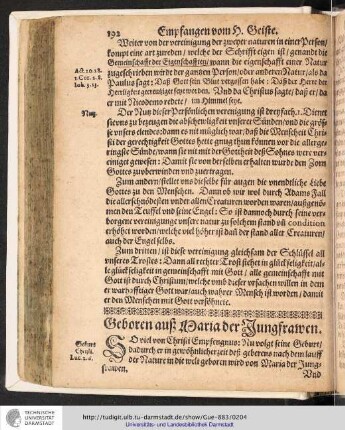 192 Empfangen vom H. Geiste.
Weiter von der vereinigung der zweyer naturen in einer Person/
kompt eine art zureden / welche der Schrifft eigen ist / genandt die
Gemeinschafft der Eigenschafften / wann die eigenschafft einer Natur
zugeschrieben wird der gantzen Person / oder anderer Natur / als da
Paulus sagt: Daß Gott sein Blut vergossen habe: Daß der Herr der
Herrligkeit gecreutziget seye worden. Und da Christus sagte / daß er / da
er mit Nicodemo redete / im Himmel seye.
Act. 20.28.
1. Cor. 2.8.
Joh. 3.13.
Nutz.
Der Nutz dieser Persönlichen vereinigung ist dreyfach. 1. Dienet
sie uns zu bezeugen die abschewligkeit unserer Sünden / und die größ-
se unsers elends: dann es nit müglich war / daß die Menscheit Chri-
sti der gerechtigkeit Gottes hette gnug thun können vor die aller ge-
ringste Sünde / wann sie nit mit der Gottheit deß Sohnes were ver-
einiget gewesen: Damit sie von derselben erhalten würde den Zorn
Gottes zu uberwinden und zuertragen.
Zum andern / stellet uns dieselbe für augen die unendtliche Liebe
Gottes zu den Menschen. Dann ob wir wol durch Adams Fall
die allerschnödesten under allen Creaturen worden waren / außgenom-
men den Teuffel und seine Engel: So ist dannoch durch seine ver-
borgene vereinigunge unsere natur zu solchem stand uñ condition
erhöhet worden / welche viel höher ist daß der stand aller Creaturen /
auch der Engel selbs.
Zum dritten / ist diese vereinigung gleichsam der Schlüssel all
unseres Trostes: Dann all rechter Trost stehet in glückseligkeit / al-
le glückseligkeit in gemeinschafft mit Gott / alle gemeinschafft mit
Gott ist durch Christum / welcher umb dieser ursachen willen in dem
er warhafftiger Gott war / auch wahrer Mensch ist worden / damit
er den Menschen mit Gott versöhnete.
Geboren auß Maria der Jungfrawen.
Geburt
Christi.
Luc. 2.6.
SO viel von Christi Empfengnus: Nu volget seine Geburt /
dadurch er in gewöhnlicher zeit deß geberens nach dem lauff
der Nature in die welt geboren wird von Maria der Jung-
frawen,
Und
TECHNISCHE
UNIVERSITÄT
DARMSTADT
http://tudigit.ulb.tu-darmstadt.de/show/Gue-883/0204
Universitäts- und Landesbibliothek Darmstadt